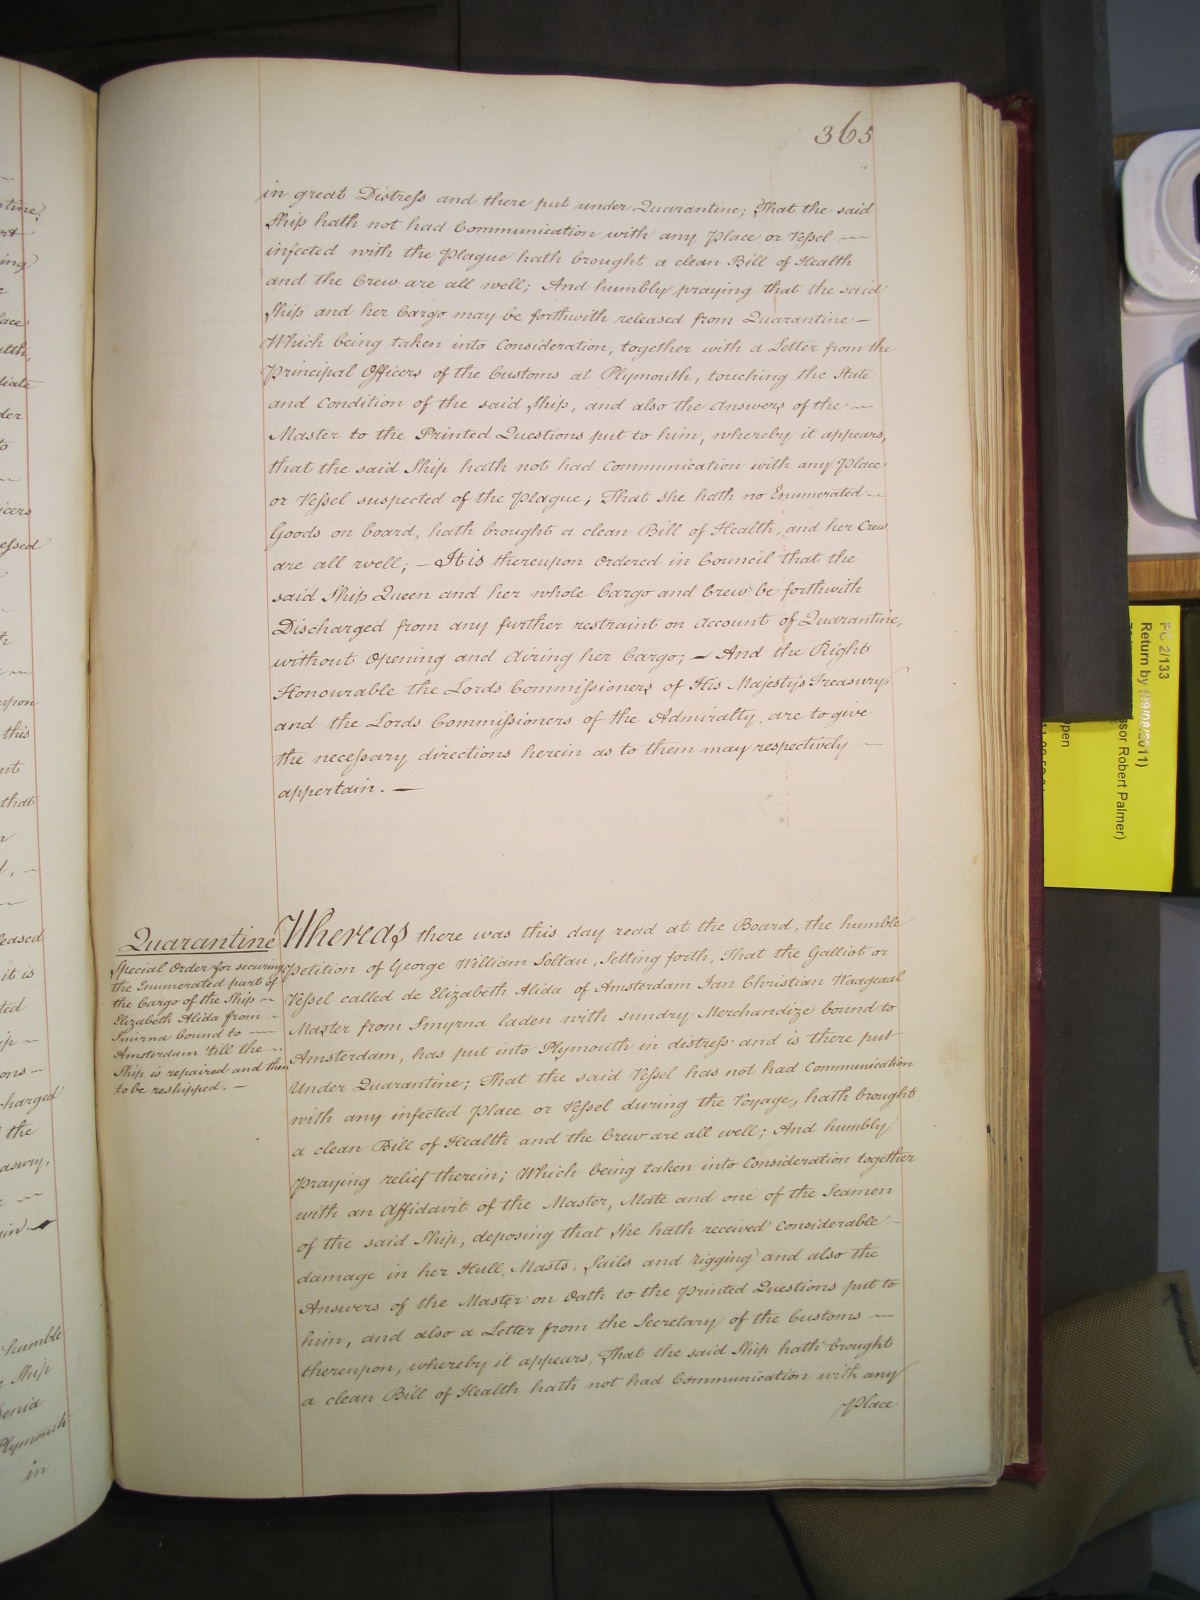 365
in great Distress and there put under Quarantine; That the said
Ship hath not had Communication with any Place or Vessel —
infected with the Plague hath brought a clean Bill of Health
and the Crew are all well; And humbly praying that the said
Ship and her Cargo may be forthwith released from Quarantine —
Which being taken into Consideration, together with a Letter from the
Principal Officers of the Customs at Plymouth, touching the State
and Condition of the said Ship, and also the Answers of the —
Master to the Printed Questions put to him, whereby it appears,
that the said Ship hath not had Communication with any Place
or Vessel suspected of the Plague; That she hath no Enumerated —
Goods on board, hath brought a clean Bill of Health, and her Crew
are all well; — It is thereupon Ordered in Council that the
said Ship Queen and her whole Cargo and Crew be forthwith
Discharged from any further restraint on Account of Quarantine,
without Opening and Airing her Cargo; — And the Right
Honourable the Lords Commissioners of His Majesty's Treasury
and the Lords Commissioners of the Admiralty, are to give
the necessary directions herein as to them may respectively —
appertain. —
Quarantine
Special Order for securing
the Enumerated part of
the Cargo of the Ship —
Elizabeth Alida from —
Smirna bound to —
Amsterdam 'till the —
Ship is repaired and then
to be reshipped. —
Whereas there was this day read at the Board, the humble
Petition of George William Soltau, Setting forth, That the Galliot or
Vessel called de Elizabeth Alida of Amsterdam Jan Christian Waageaal
Master from Smyrna laden with sundry Merchandize bound to
Amsterdam, has put into Plymouth in distress and is there put
Under Quarantine; That the said Vessel has not had Communication
with any infected Place or Vessel during the Voyage, hath brought
a clean Bill of Health and the Crew are all well; And humbly
praying relief therein; Which being taken into Consideration together
with an Affidavit of the Master, Mate and one of the Seamen
of the said Ship, deposing that She hath received Considerable —
damage in her Hull, Masts, Sails and rigging and also the
Answers of the Master on Oath to the Printed Questions put to
him, and also a Letter from the Secretary of the Customs —
thereupon, whereby it appears, That the said Ship hath brought
a clean Bill of Health hath not had Communication with any
Place
PC 2/133
Return by (09/08/2011)
ssor Robert Palmer)